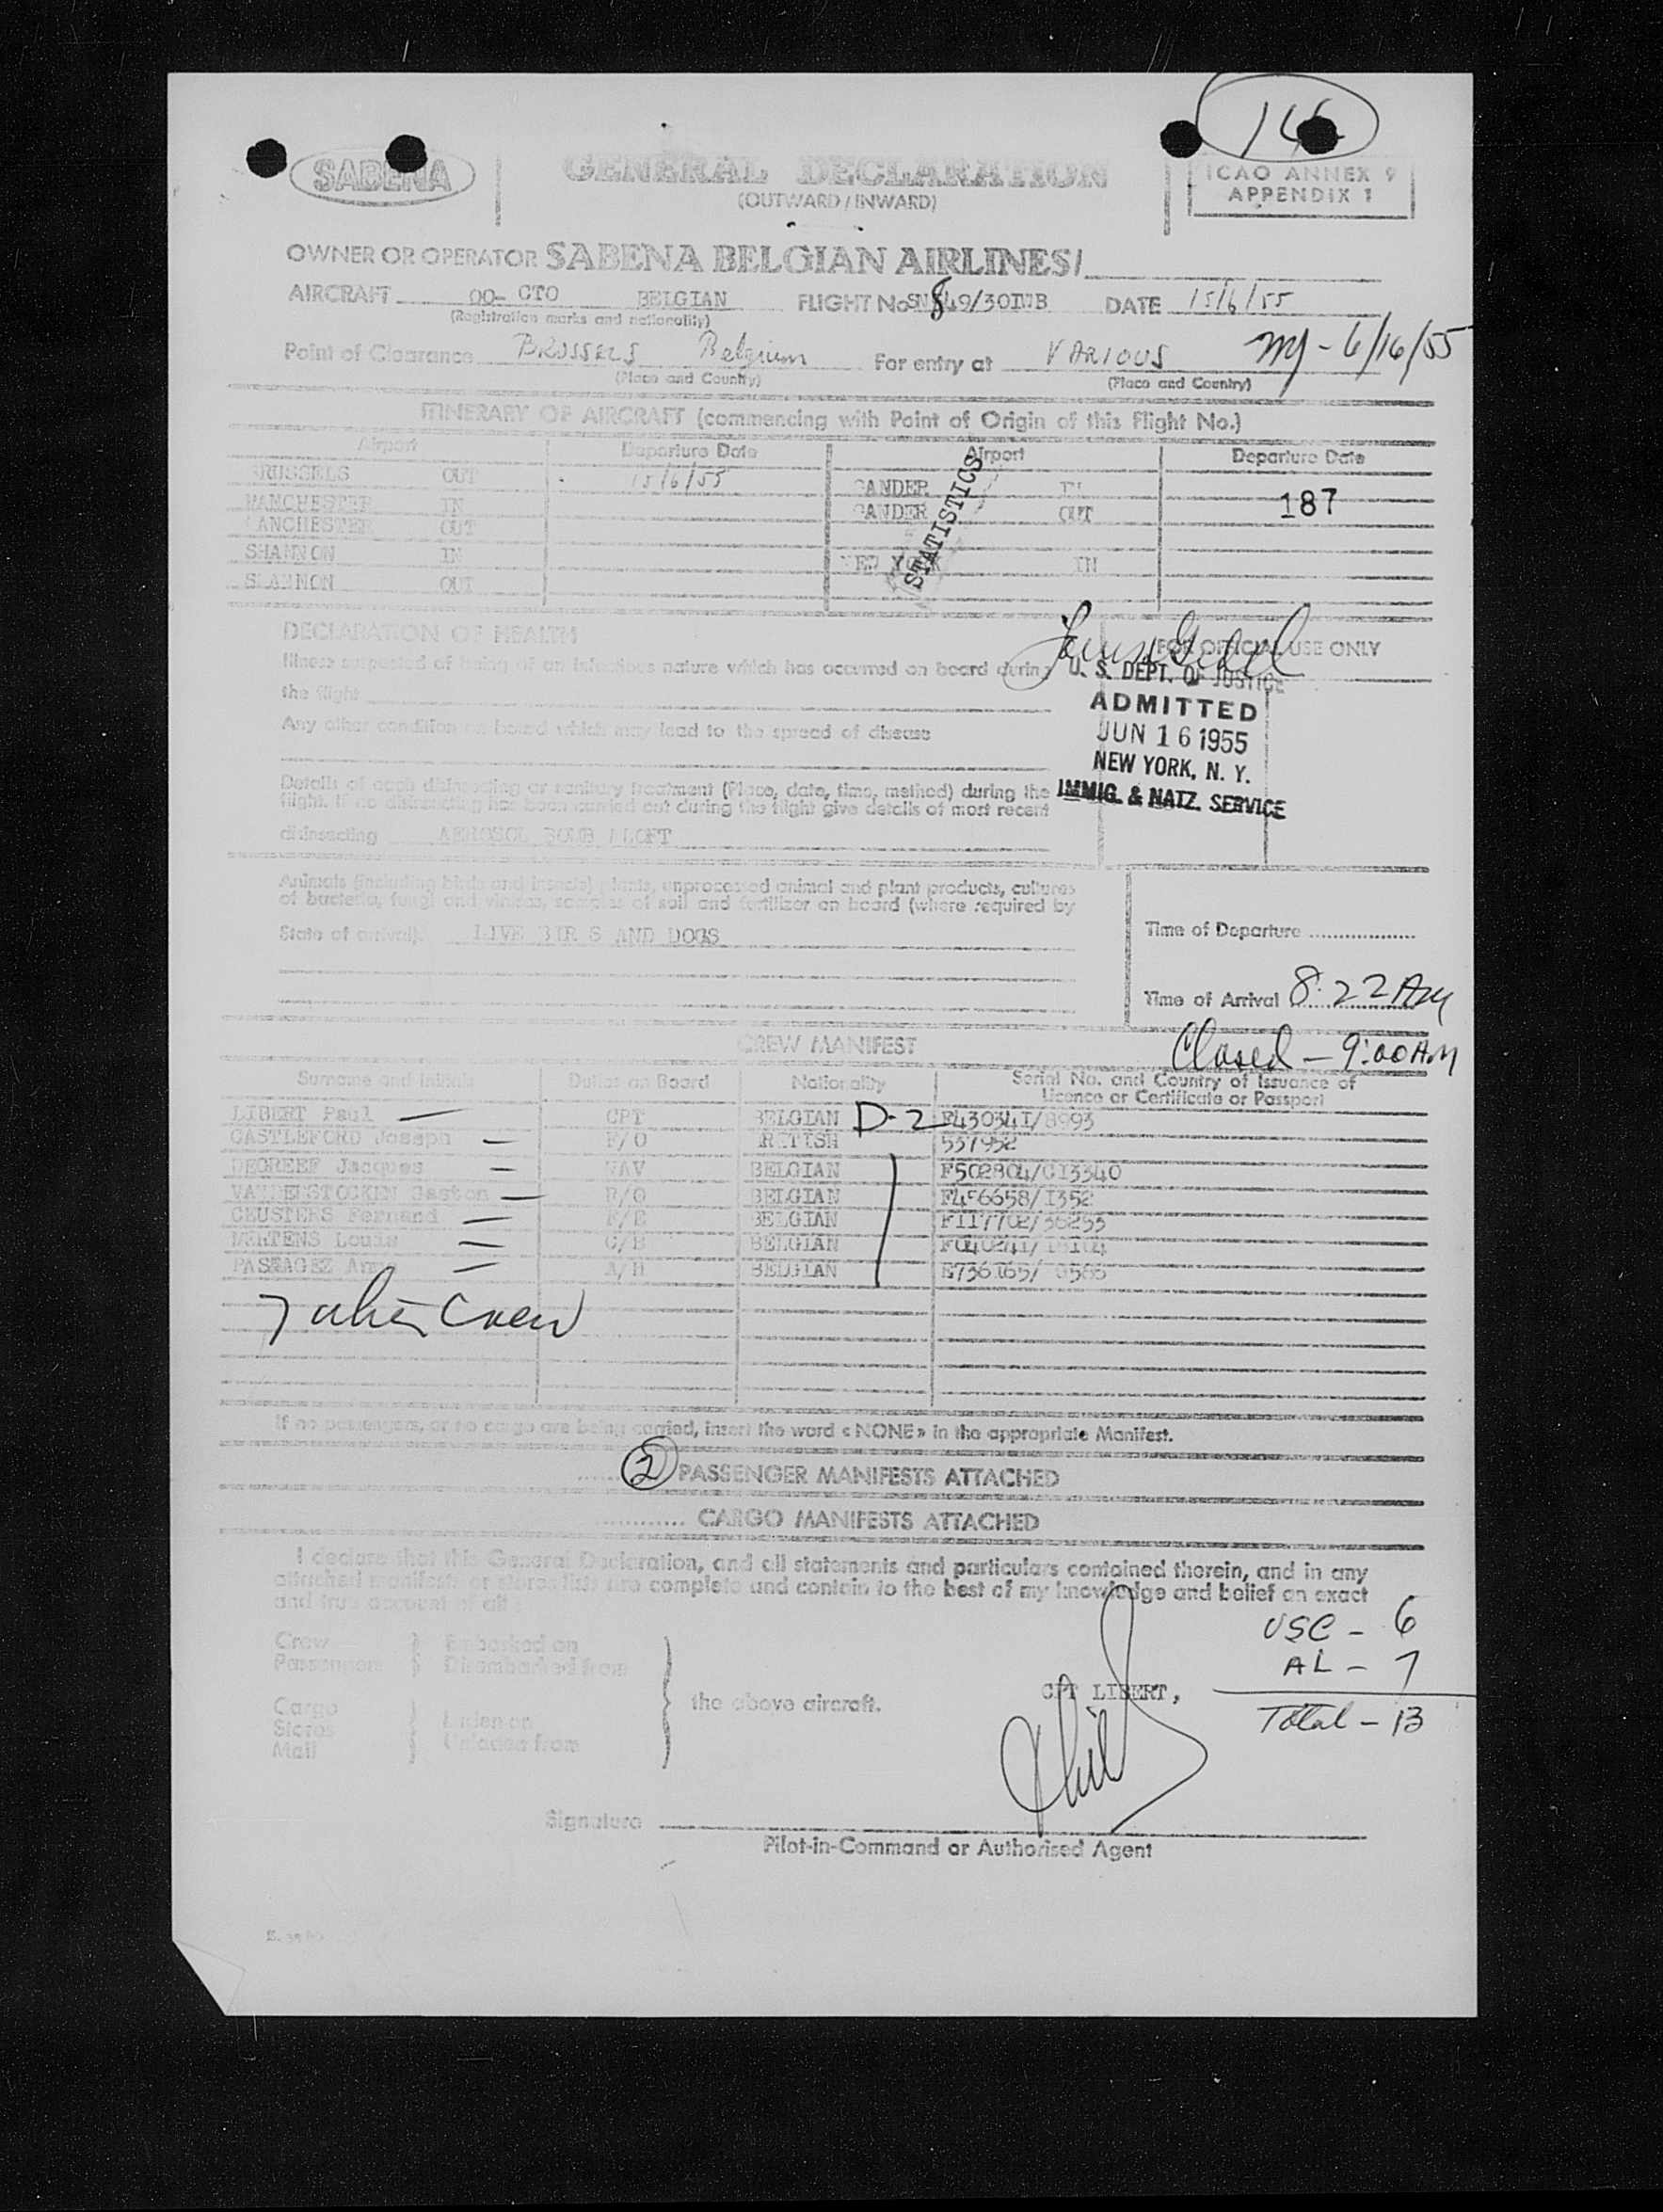 SABENA
GENERAL DECLARATION
(OUTWARD / INWARD)
ICAO ANNEX 9
APPENDIX 1
OWNER OR OPERATOR SABENA BELGIAN AIRLINES/
AIRCRAFT OO- CTO BELGIAN FLIGHT No SN 849/30 DATE 15/6/55
(Registration marks and nationality)
Point of Clearance BRUSSELS Belgium For entry at VARIOUS 6/16/55
(Place and Country) (Place and Country)
ITINERARY OF AIRCRAFT (commencing with Point of Origin of this Flight No.)
Airport Departure Date Airport Departure Date
BRUSSELS OUT 15/6/55 GANDER IN
MANCHESTER IN GANDER OUT 187
MANCHESTER OUT
SHANNON IN NEW YORK IN
SHANNON OUT
STATISTICS
DECLARATION OF HEALTH
FOR OFFICIAL USE ONLY
Illness suspected of being of an infectious nature which has occurred on board during
the flight
U. S. DEPT. OF JUSTICE
ADMITTED
JUN 16 1955
NEW YORK, N. Y.
IMMIG. & NATZ. SERVICE
Any other condition on board which may lead to the spread of disease
Details of each disinsecting or sanitary treatment (Place, date, time, method) during the
flight. If no disinsecting has been carried out during the flight give details of most recent
disinsecting AEROSOL BOMB ALOFT
Animals (including birds and insects) plants, unprocessed animal and plant products, cultures
of bacteria, fungi and viruses, samples of soil and fertilizer on board (where required by
State of arrival). LIVE BIR S AND DOGS
Time of Departure
Time of Arrival 8:22 AM
Closed - 9:00 AM
CREW MANIFEST
Surname and Initials Duties on Board Nationality Serial No. and Country of Issuance of
Licence or Certificate or Passport
LIBERT Paul CPT BELGIAN D-2 F430341/8993
CASTLEFORD Joseph F/O BRITISH 537952
DEGREEF Jacques NAV BELGIAN F502804/CI3340
Gaston R/O BELGIAN F456658/I352
CEUSTERS Fernand F/E BELGIAN F117702/36253
MERTENS Louis BELGIAN
A/H BELGIAN
7 Crew
If no passengers, or no cargo are being carried, insert the word « NONE » in the appropriate Manifest.
2 PASSENGER MANIFESTS ATTACHED
CARGO MANIFESTS ATTACHED
I declare that this General Declaration, and all statements and particulars contained therein, and in any
attached manifests or stores lists are complete and contain to the best of my knowledge and belief an exact
and true account of all :
USC - 6
AL - 7
Total - 13
Crew Embarked on
Passengers Disembarked from
the above aircraft.
CPT LIBERT,
Cargo
Stores Laden on
Mail Unladen from
Signature
Pilot-in-Command or Authorised Agent